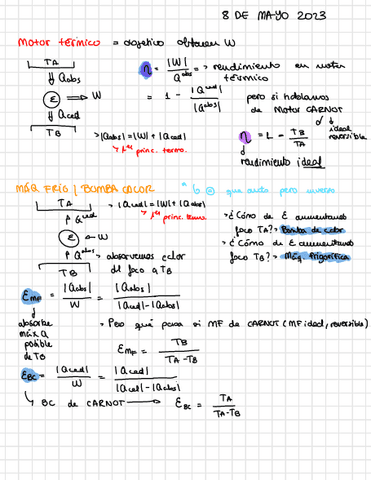 8 DE MAYO 2023
Motor térmico = objetivo obtener W
TA
↓ Qabs
ε ⇒ W
↓ Qced
TB
η = |W| / Qabs = > rendimiento en motor térmico
= 1 - |Qced| / |Qabs|
pero si hablamos de Motor CARNOT
ideal reversible
η = 1 - TB / TA
rendimiento ideal
> |Qabs| = |W| + |Qced|
> 1er princ. termo.
MÁQ FRIG / BOMBA CALOR
que actúa pero inverso
TA
↑ Qced
ε ← W
↑ Qabs
TB
> |Qced| = |W| + |Qabs|
> 1er princ. termo.
> absorvemos calor del foco a TB
> ¿Cómo de E aumentamos foco TA? > Bomba de calor
> ¿Cómo de E aumentamos foco TB? > Máq. frigorífica
εMF = |Qabs| / W = |Qabs| / |Qced|-|Qabs|
absorbe máx Q posible de TB
> Pero qué pasa si MF de CARNOT (MF ideal, reversible)
εMF = TB / TA-TB
εBC = |Qced| / W = |Qced| / |Qced|-|Qabs|
BC de CARNOT → εBC = TA / TA-TB